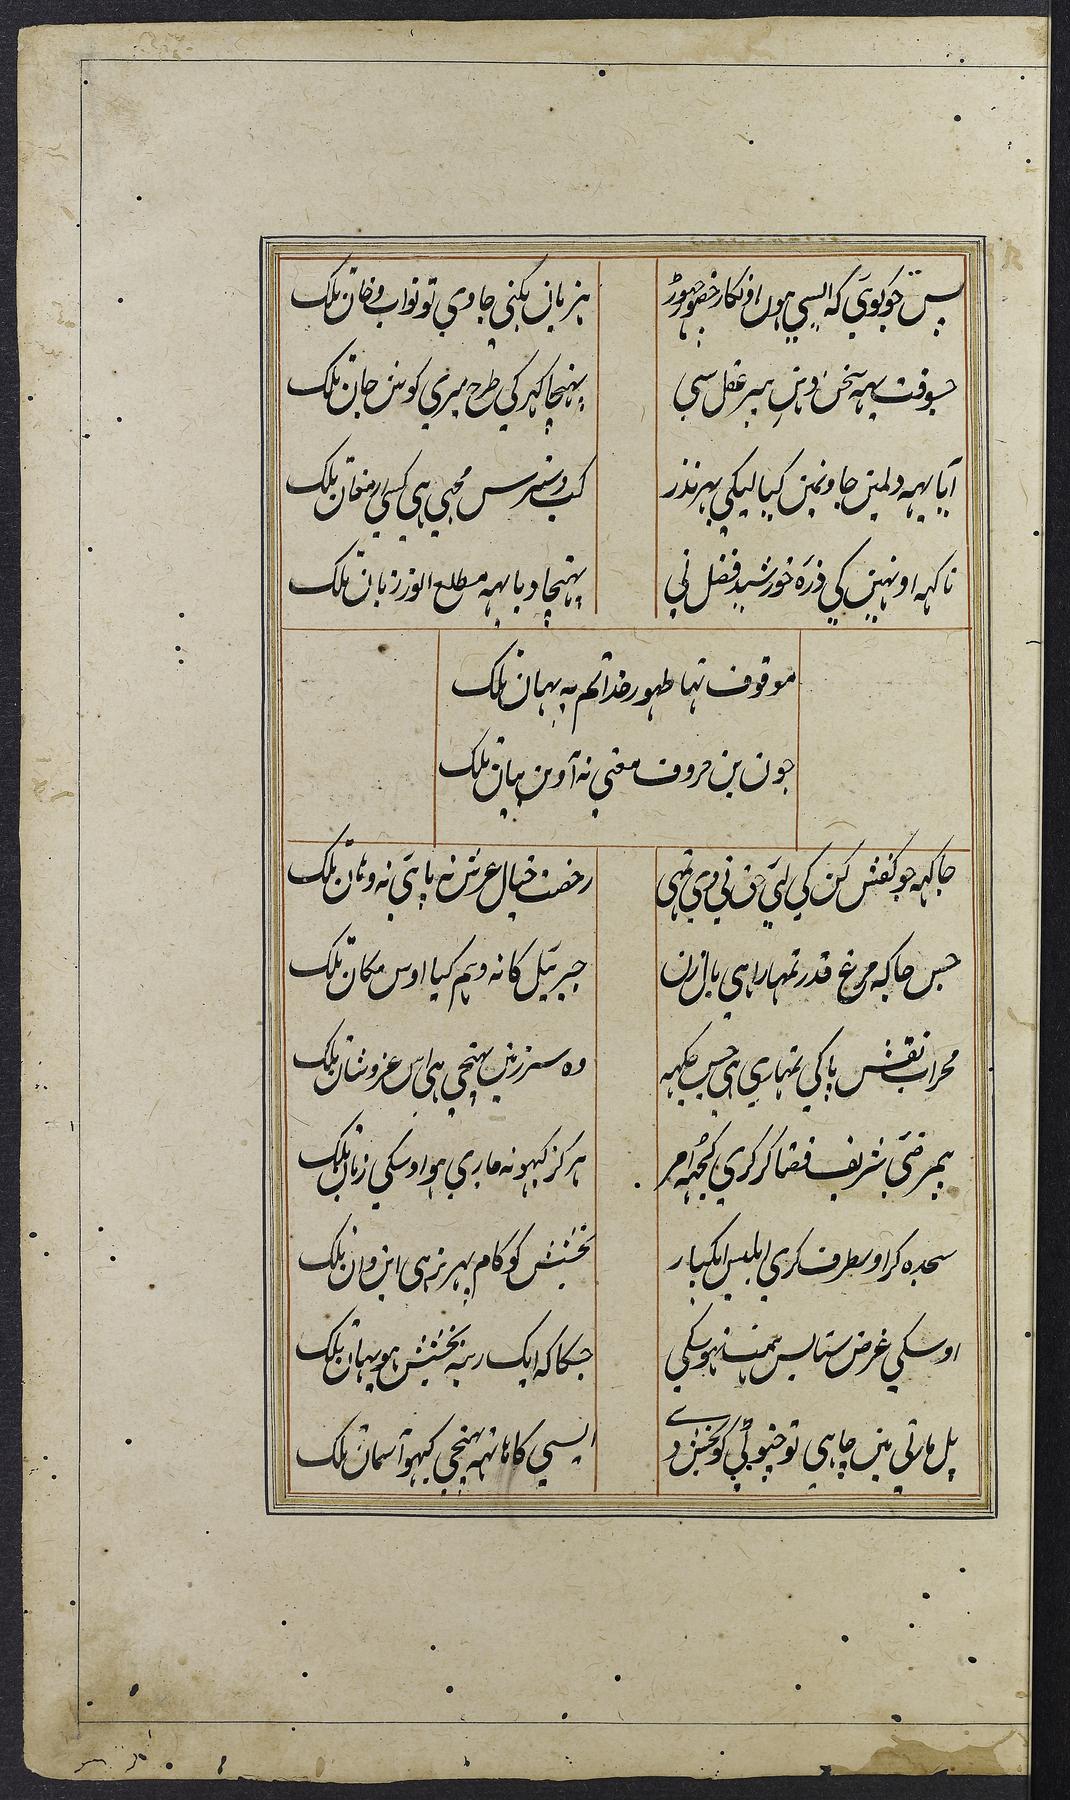 پس جو کوئی کہ ایسی ہوں اونکا رخصو چھوڑ
ہزیان بکنی جاوی تو نواب و خان تلک
جسوقت یہہ سخن وہن پیر عقل سی
پہنچا کہر کی طرح میری کوش جان تلک
آیا یہہ دلمین جاونمین کیا لیکی بہر نذر
کب دسترس مجہی ہی کسی ارمغان تلک
ناکہہ اونہین کی ذرہ خورشید فضل نی
پہنچا دیا یہہ مطلع انور زبان تلک
موقوف تہا ظہور خدا تم پہ یہان تلک
جون بن حروف معنی نہ آوین بیان تلک
جاکہہ جو کفش کن کی لئی حق نی دی تمہی
رخصت خیال عرش نہ پائی نہ وہان تلک
جس جاکہ مرغ قدر تمہارا ہی بال زن
جبرئیل کا نہ وہم کیا اوس مکان تلک
محراب نقش پا کی تمہاری ہی جس جکہہ
وہ سرزمین پہنچی ہی اس عز و شان تلک
ہر کز کبہو نہ جاری ہو اوسکی زبان تلک
سجدہ کر اوسطرف کری ابلیس ایکبار
بخشش کو کام پہر نہ ہی این و ان تلک
اوسکی غرض ستایس ہمت نہوسکی
جسکا کہ ایک رتبہ بخشش ہو یہان تلک
پل مارتی مین چاہی تو چیونٹی کو بخش دے
ایسی کا ہاتہہ پہنچی کبہو آسمان تلک